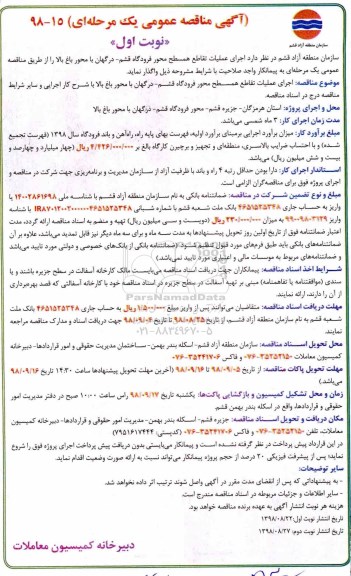 (آگهی مناقصه عمومی یک مرحله‌ای) ۱۵-۹۸
«نوبت اول»
سازمان منطقه آزاد قشم
سازمان منطقه آزاد قشم در نظر دارد اجرای عملیات تقاطع همسطح محور فرودگاه قشم- درگهان با محور باغ بالا را از طریق مناقصه
عمومی یک مرحله‌ای به پیمانکار واجد صلاحیت با شرایط مشروحه ذیل واگذار نماید.
موضوع مناقصه: اجرای عملیات تقاطع همسطح محور فرودگاه قشم- درگهان با محور باغ بالا با شرح کار اجرایی و سایر شرایط
مناقصه درج در اسناد مناقصه.
محل و اجرای پروژه: استان هرمزگان- جزیره قشم- محور فرودگاه قشم- درگهان با محور باغ بالا
مدت زمان اجرای کار: ۳ ماه شمسی می‌باشد.
مبلغ برآورد کار: میزان برآورد اجرایی برمبنای برآورد اولیه، فهرست بهای پایه راه، راه‌آهن و باند فرودگاه سال ۱۳۹۸ (فهرست تجمیع
شده) و با احتساب ضرایب بالاسری، منطقه‌ای و تجهیز و برچیدن کارگاه بالغ بر ۴/۴۲۶/۰۰۰/۰۰۰ ریال (چهار میلیارد و چهارصد و
بیست و شش میلیون ریال) می‌باشد.
استانداری اجرای کار: دارا بودن حداقل رتبه ۴ راه و باند با ظرفیت آزاد از سازمان مدیریت و برنامه‌ریزی جهت شرکت در مناقصه و
اجرای پروژه فوق برای مناقصه‌گران الزامی است.
مبلغ و نوع تضمین شرکت در مناقصه: ضمانتنامه بانکی به نام سازمان منطقه آزاد قشم با شناسه ملی ۱۴۰۰۲۸۶۱۶۹۸ یا
واریز به حساب جاری ۴۶۵۱۵۲۵۳۴۸ بانک ملت شعبه قشم با شماره شبای
واریز ۹۹۰۰۹۸۰۳۱۲۹ به میزان ۲۳۰/۰۰۰/۰۰۰ ریال (دویست و سی میلیون ریال) تهیه و منضم به اسناد مناقصه ارائه گردد، مدت
اعتبار ضمانتنامه فوق از تاریخ اولین روز تحویل پیشنهادها به مدت سه ماه و برای سه ماه دیگر نیز قابل تمدید می‌باشد، علاوه بر آن
ضمانتنامه‌های بانکی باید طبق فرم‌های مورد قبول تنظیم شود (ضمانتنامه بانکی از بانک‌های خصوصی و دولتی مورد تایید می‌باشد
و ضمانتنامه‌های مربوط به موسسات مالی و اعتباری مورد تایید نمی‌باشد)
شرایط اخذ اسناد مناقصه: پیمانکاران جهت دریافت اسناد مناقصه می‌بایست مالک کارخانه آسفالت در سطح جزیره باشند و یا
سندی (موافقتنامه یا تفاهمنامه) مبنی بر تهیه آسفالت در سطح جزیره در اسناد مناقصه خود با کارخانه آسفالتی که قصد بهره‌برداری
از آن را دارند، ارائه نمایند.
مهلت دریافت اسناد مناقصه: متقاضیان می‌توانند پس از واریز مبلغ ۱/۵۰۰/۰۰۰ ریال به حساب جاری ۴۶۵۱۵۲۵۳۴۸ بانک ملت
شعبه قشم به نام سازمان منطقه آزاد قشم، از تاریخ ۹۸/۰۸/۲۵ تا تاریخ ۹۸/۰۹/۰۴ جهت دریافت اسناد و مدارک مناقصه مراجعه
نمایند.
محل تحویل اسناد مناقصه: سازمان منطقه آزاد قشم- اسکله بهمن- ساختمان مدیریت حقوقی و امور قراردادها- دبیرخانه
کمیسیون معاملات ۳۵۲۵۲۱۵۰-۰۷۶ و فاکس ۳۵۲۴۱۷۰۶-۰۷۶
مهلت تحویل پاکات مناقصه: از تاریخ ۹۸/۰۹/۰۵ تا ۹۸/۰۹/۱۶ (آخرین مهلت تحویل پیشنهادها ساعت ۱۴:۳۰ تاریخ ۹۸/۰۹/۱۶
می‌باشد)
زمان و محل تشکیل کمیسیون و بازگشایی پاکت‌ها: یکشنبه تاریخ ۹۸/۰۹/۱۷ راس ساعت ۱۰:۰۰ صبح در دفتر مدیریت امور
حقوقی و قراردادها واقع در اسکله بندر بهمن قشم.
مکان دریافت و تحویل اسناد مناقصه: جزیره قشم- اسکله بندر بهمن- مدیریت امور حقوقی و قراردادها- دبیرخانه کمیسیون
معاملات، تلفن ۳۵۲۵۲۱۵۰-۰۷۶ و فاکس ۳۵۲۴۱۷۰۶-۰۷۶ (کدپستی: ۷۹۵۱۶۱۷۴۴۴)
در این قرارداد پیش پرداخت در نظر گرفته نشده است و پیمانکار می‌بایستی بدون دریافت پیش پرداخت اجرای پروژه فوق را شروع
نماید؛ پس از پیشرفت فیزیکی ۲۰ درصد از حجم پروژه پیمانکار می‌تواند نسبت به ارائه صورت وضعیت اقدام نماید.
سایر توضیحات:
- به پیشنهاداتی که پس از انقضای مدت مقرر در آگهی واصل شوند ترتیب اثر داده نخواهد شد.
- سایر اطلاعات و جزئیات مربوطه در اسناد مناقصه مندرج است.
هزینه هر نوبت انتشار آگهی به عهده برنده مناقصه خواهد بود.
تاریخ انتشار نوبت اول: ۱۳۹۸/۰۸/۲۲
تاریخ انتشار نوبت دوم: ۱۳۹۸/۰۸/۲۷
دبیرخانه کمیسیون معاملات
ParsNamadData
۰۲۱-۸۸۳۴۹۶۷۰-۵